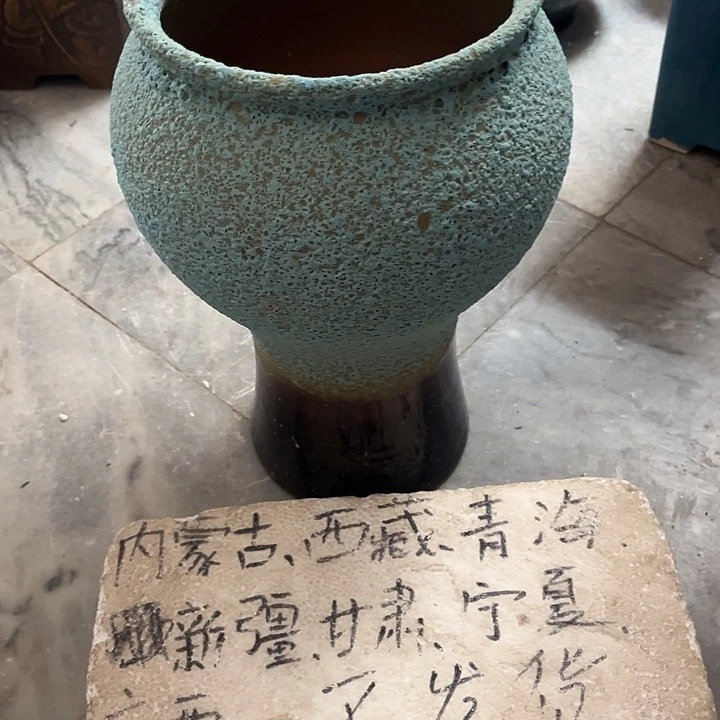 内蒙古、西藏、青海
新彊、甘肃、宁夏、
西不发货